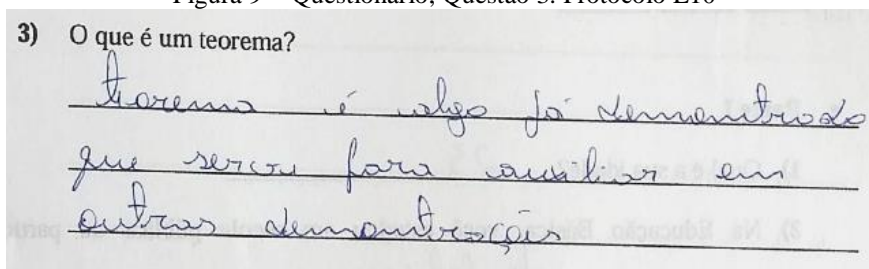 Figura 9 – Questionário, Questão 3. Protocolo E16
3) O que é um teorema?
teorema é algo já demonstrado
que serve para auxiliar em
outras demonstrações